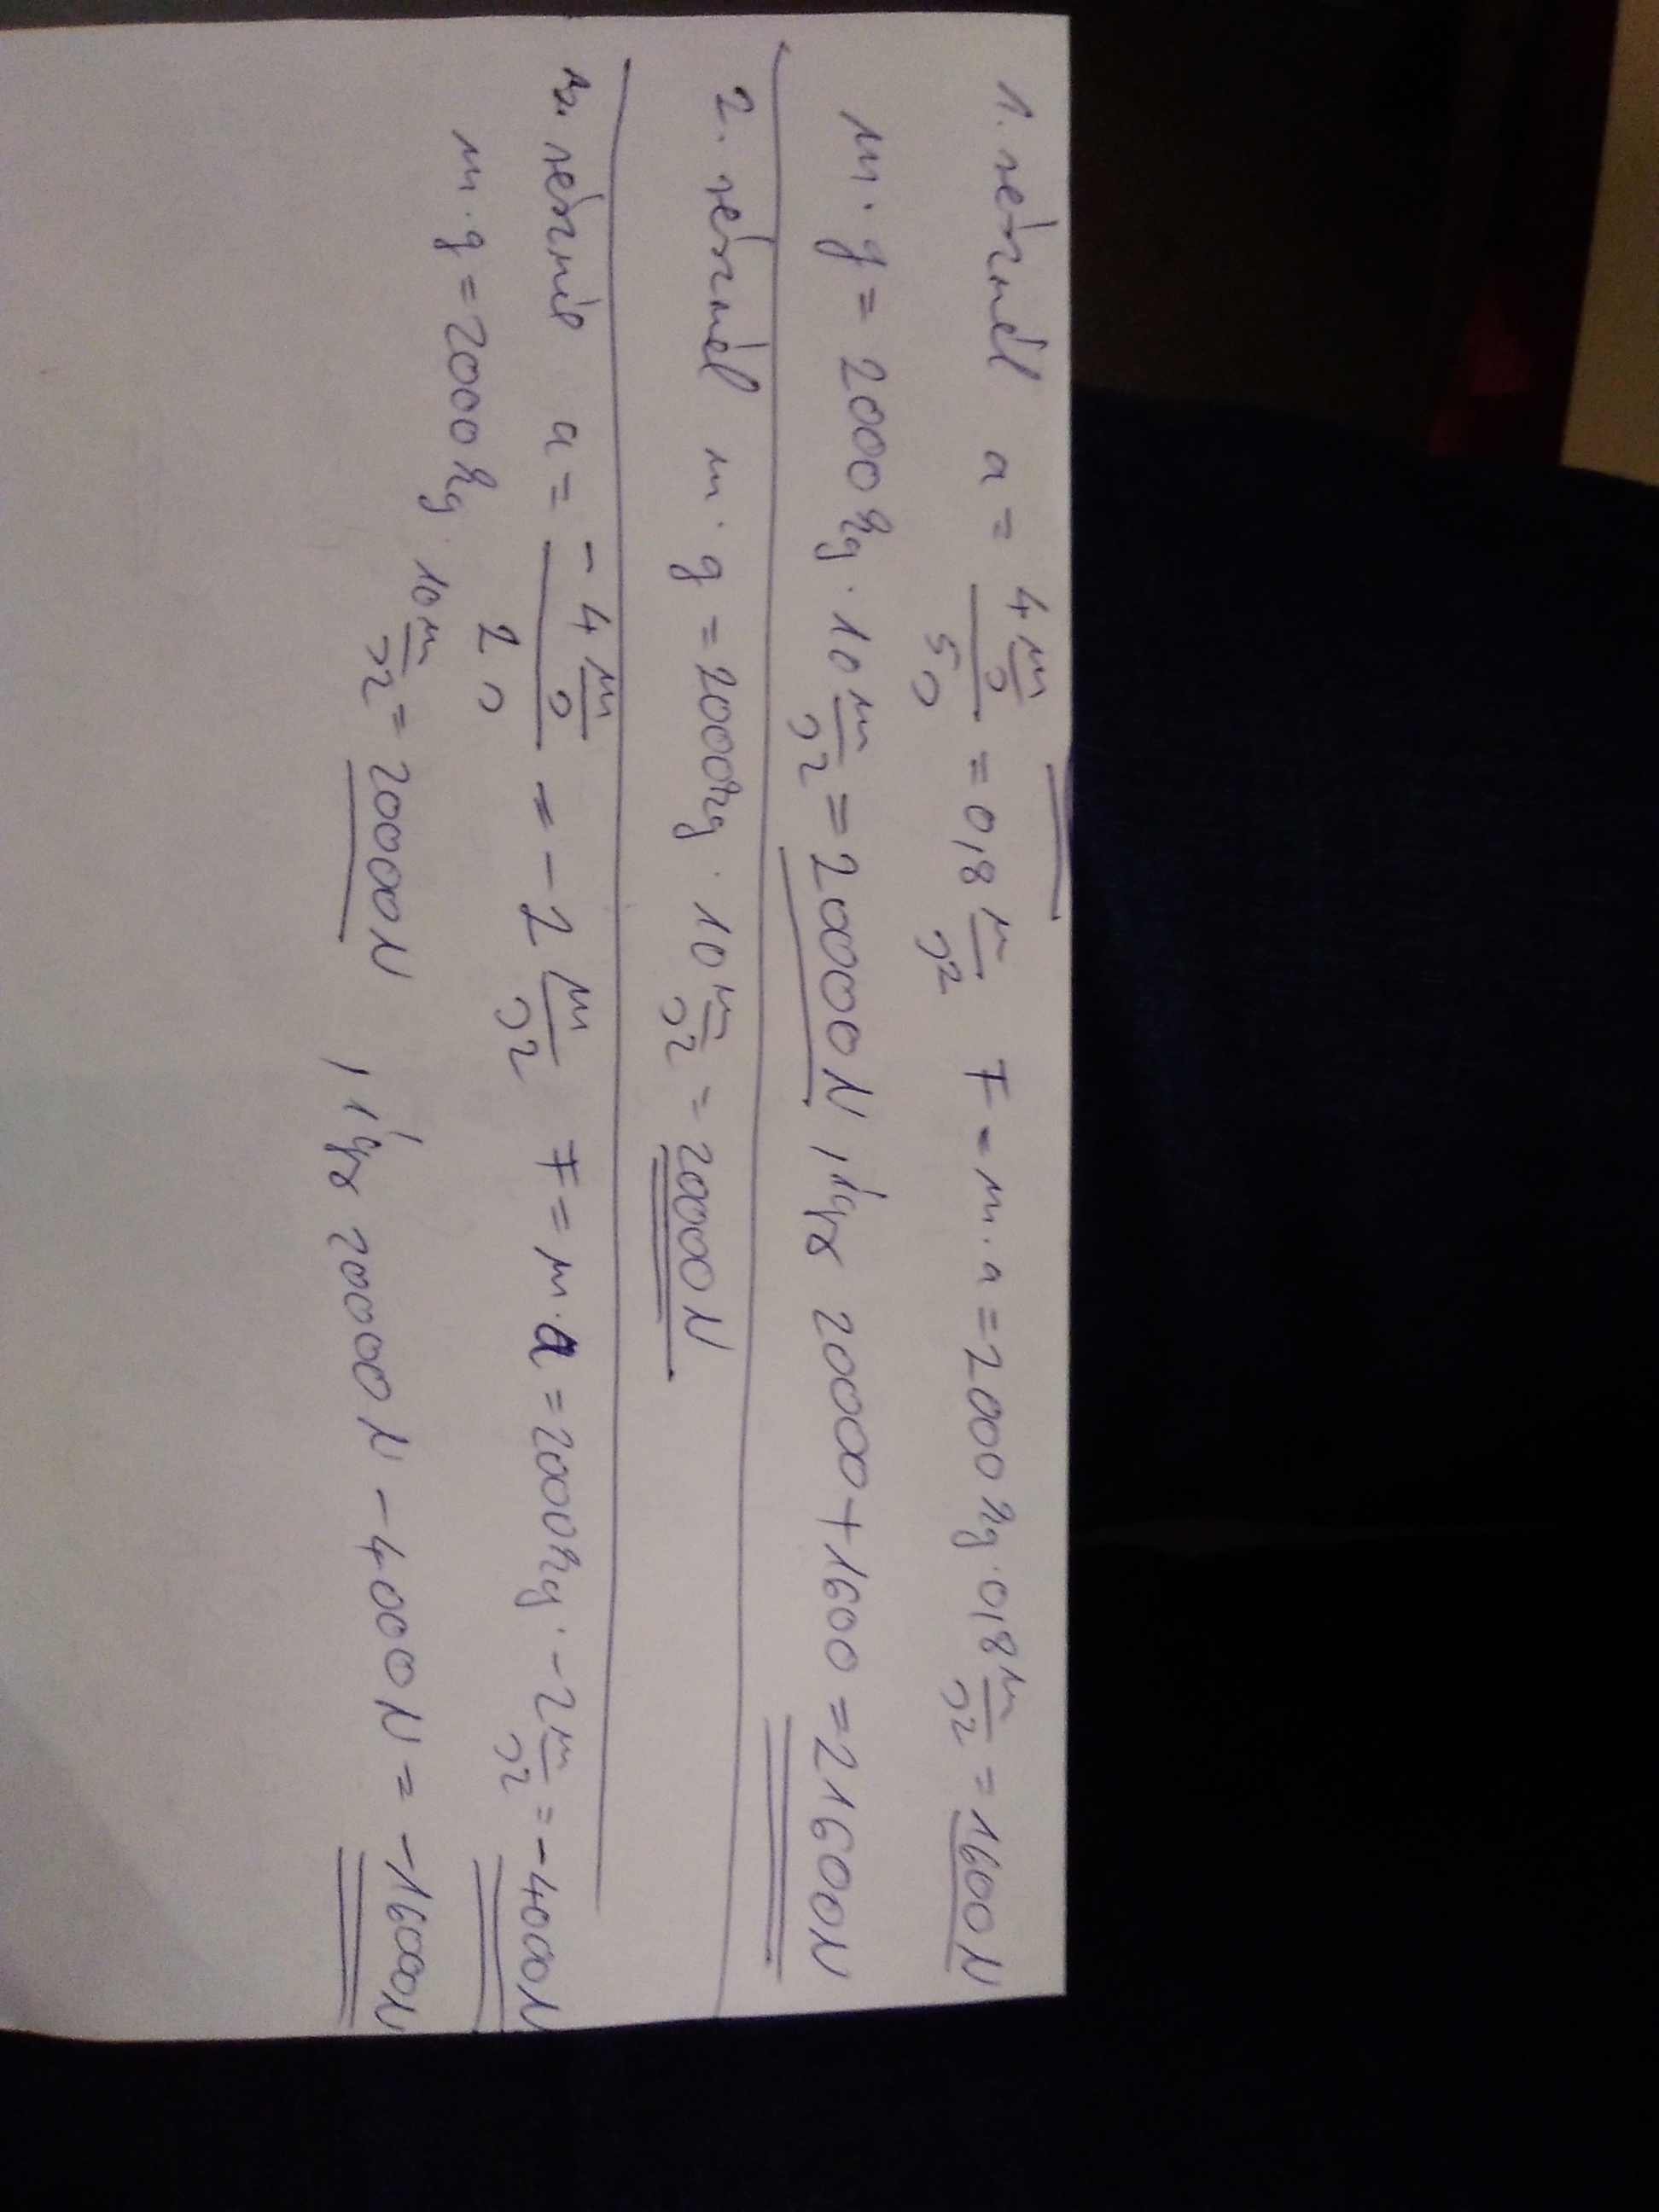 1. résznél a = 4 m/s / 5 s = 0,8 m/s² F = m · a = 2000 kg · 0,8 m/s² = 1600 N
m · g = 2000 kg · 10 m/s² = 20000 N, így 20000 + 1600 = 21600 N
2. résznél m · g = 2000 kg · 10 m/s² = 20000 N
3. résznél a = -4 m/s / 2 s = -2 m/s² F = m · a = 2000 kg · -2 m/s² = -4000 N
m · g = 2000 kg · 10 m/s² = 20000 N, így 20000 N - 4000 N = -16000 N